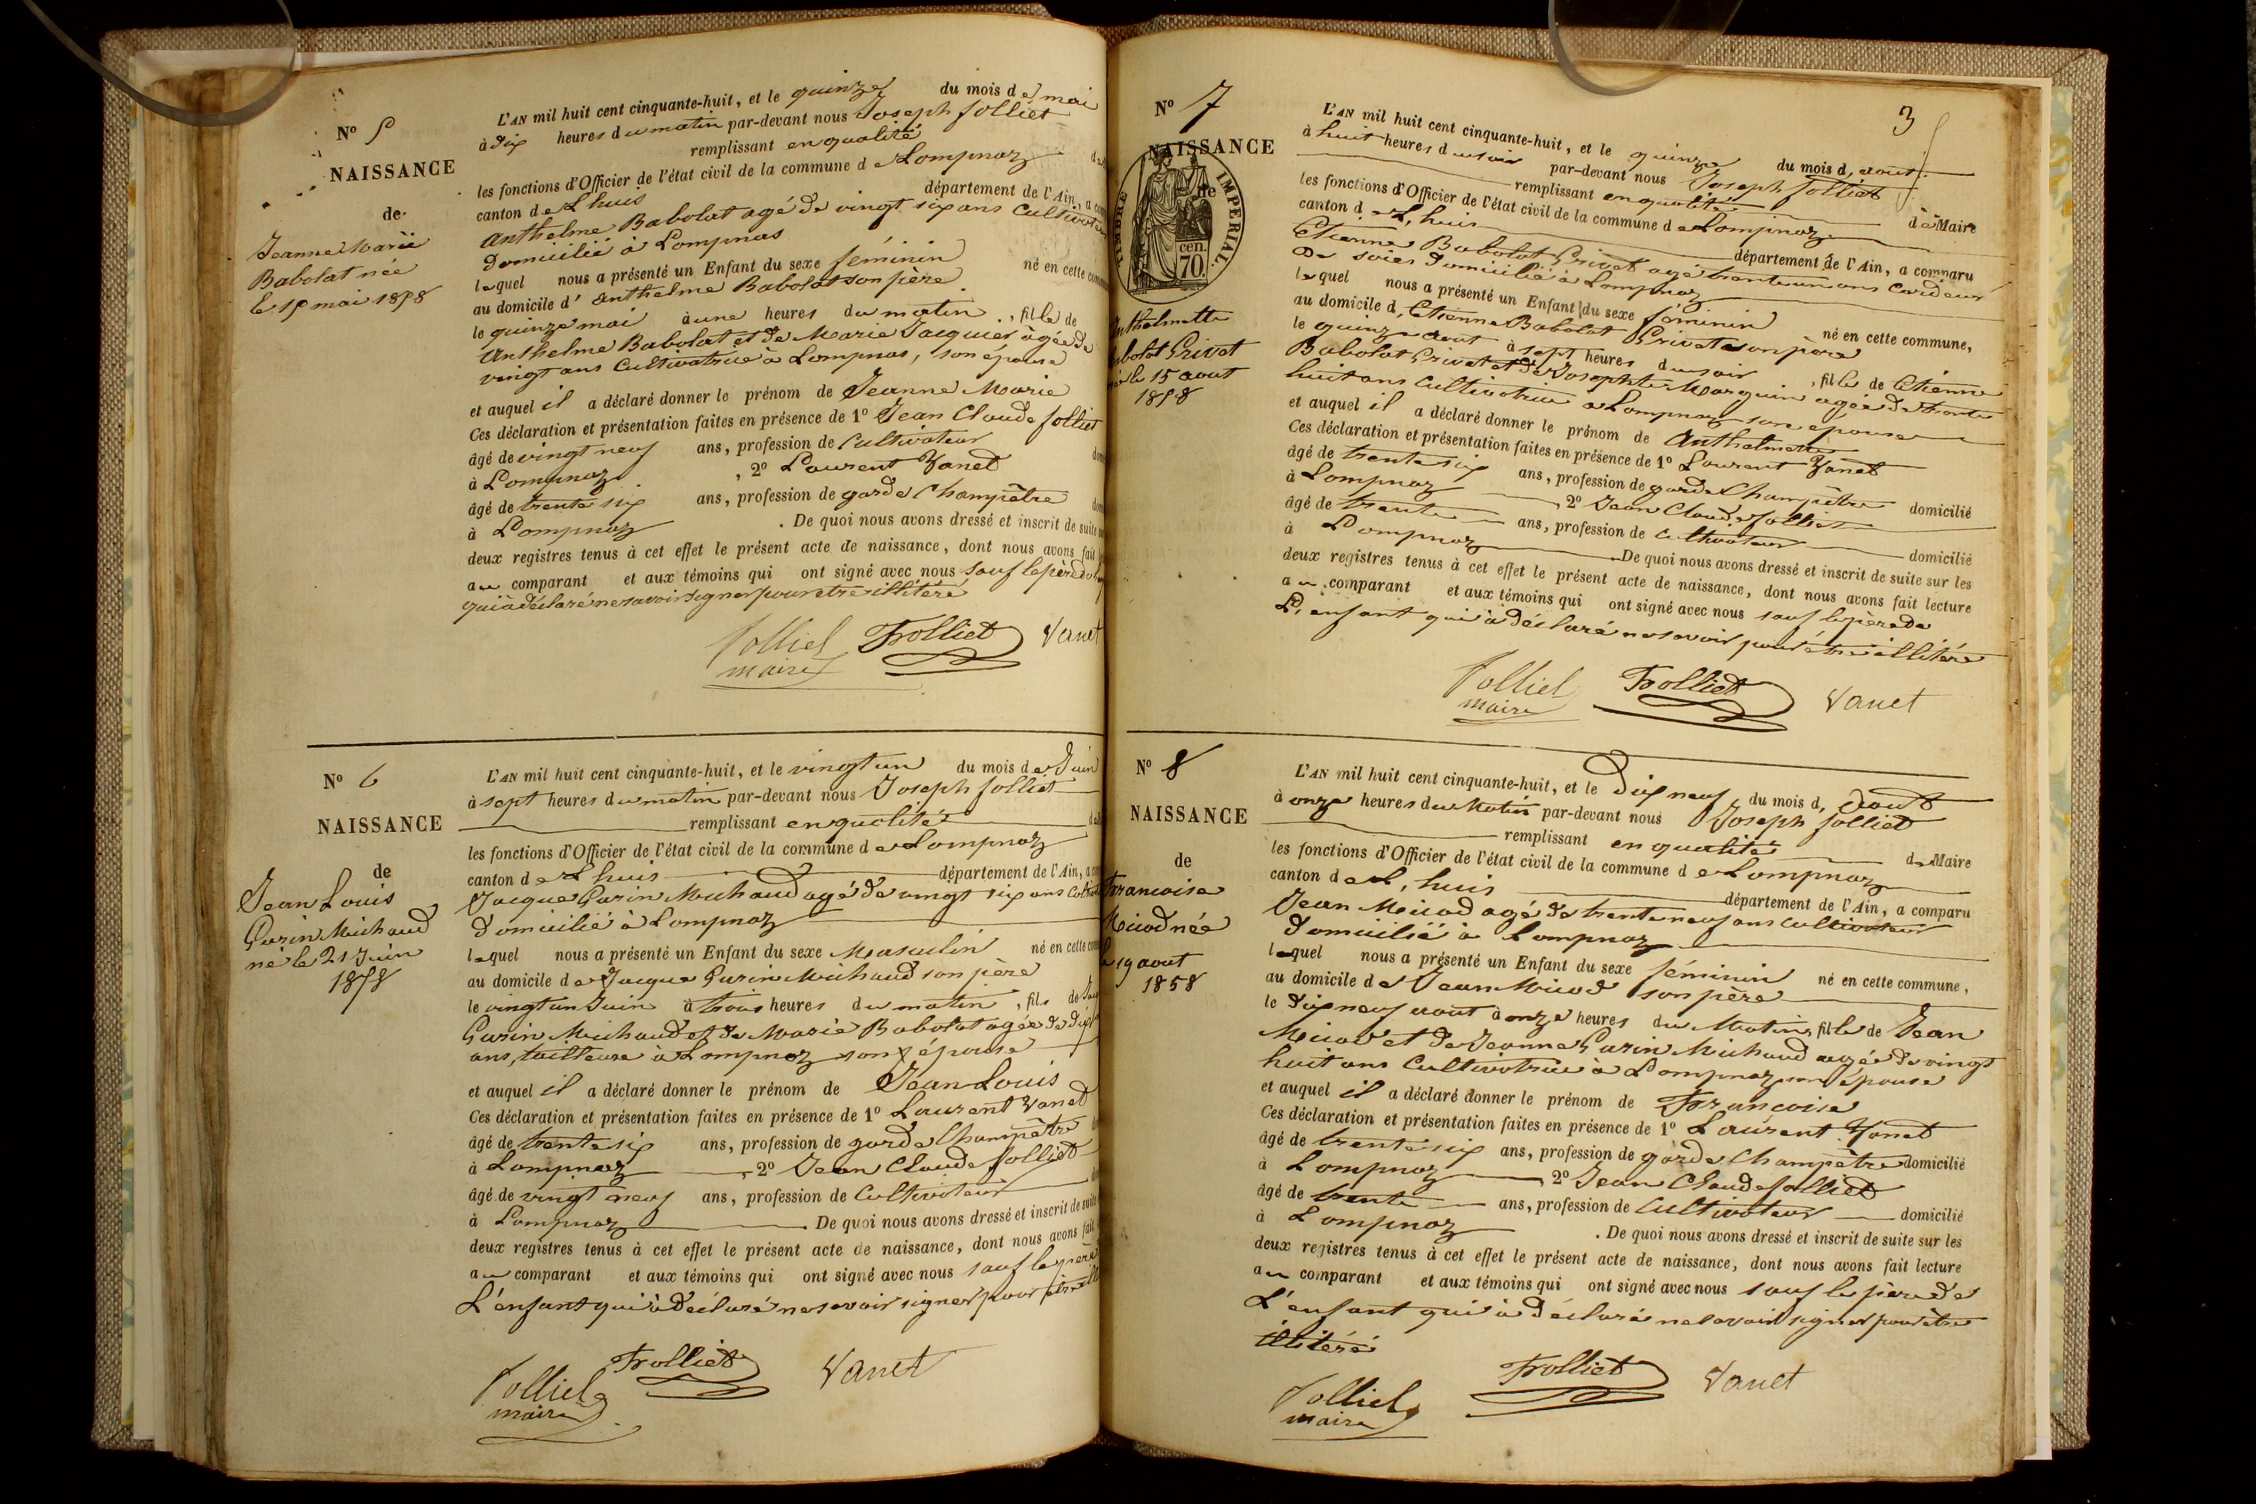 N° 5
NAISSANCE
de
Jeanne Marie
Babolat née
le 15 mai 1858
L'AN mil huit cent cinquante-huit, et le quinze du mois de mai
à dix heures du matin par-devant nous Joseph Jolliet
remplissant en qualité
les fonctions d'Officier de l'état civil de la commune de Lompnaz
canton de Lhuis département de l'Ain, a
Anthelme Babolat agé de vingt six ans
domicilié à Lompnas
lequel nous a présenté un Enfant du sexe féminin né en cette
au domicile d' Anthelme Babolat son père
le quinze mai à une heures du matin, fille de
Anthelme Babolat et de Marie Jacquies âgée de
vingt ans Cultivatrice à Lompnas, son épouse
et auquel il a déclaré donner le prénom de Jeanne Marie
Ces déclaration et présentation faites en présence de 1° Jean Claude Jolliet
âgé de vingt neuf ans, profession de Cultivateur
à Lompnaz, 2° Laurent Vanet
âgé de trente six ans, profession de garde Champêtre
à Lompnaz. De quoi nous avons dressé et inscrit de suite
deux registres tenus à cet effet le présent acte de naissance, dont nous avons fait
au comparant et aux témoins qui ont signé avec nous sauf le père
qui à déclaré ne savoir signer pour être illitéré
Jolliet Jolliet Vanet
maire
N° 6
NAISSANCE
de
Jean Louis
Gurin Michaud
né le 21 Juin
1858
L'AN mil huit cent cinquante-huit, et le vingt un du mois de Juin
à sept heures du matin par-devant nous Joseph Jolliet
remplissant en qualité
les fonctions d'Officier de l'état civil de la commune de Lompnaz
canton de Lhuis département de l'Ain, a
Jacque Gurin Michaud agé de vingt six ans
domicilié à Lompnaz
lequel nous a présenté un Enfant du sexe Masculin né en cette
au domicile de Jacque Gurin Michaud son père
le vingt un Juin à trois heures du matin, fils de
Gurin Michaud et de Marie Babolat agée de
ans, tailleuse à Lompnaz son épouse
et auquel il a déclaré donner le prénom de Jean Louis
Ces déclaration et présentation faites en présence de 1° Laurent Vanet
âgé de trente six ans, profession de garde Champêtre
à Lompnaz, 2° Jean Claude Jolliet
âgé de vingt neuf ans, profession de Cultivateur
à Lompnaz. De quoi nous avons dressé et inscrit de suite
deux registres tenus à cet effet le présent acte de naissance, dont nous avons fait
au comparant et aux témoins qui ont signé avec nous sauf le père
L'enfant qui à déclaré ne savoir signer pour
Jolliet Jolliet Vanet
maire
3
N° 7
NAISSANCE
de
TIMBRE IMPERIAL.
70 cen.
Anthelmette
Grivet
le 15 aout
1858
L'AN mil huit cent cinquante-huit, et le quinze du mois d, aout
à huit heures du soir par-devant nous Joseph Jolliet
remplissant en qualité de Maire
les fonctions d'Officier de l'état civil de la commune de Lompnaz
canton de L, huis département de l'Ain, a comparu
Etienne Babolat Grivet agé trente un ans Cardeur
De soies domicilié à Lompnaz
lequel nous a présenté un Enfant du sexe féminin né en cette commune,
au domicile d, Etienne Babolat Grivet son père
le quinze aout à sept heures du soir, fille de Etienne
Babolat Grivet et de Josephte Marguin agée de trente
huit ans Cultivatrice a Lompnaz son epouse
et auquel il a déclaré donner le prénom de Anthelmette
Ces déclaration et présentation faites en présence de 1° Laurent Vanet
âgé de trente six ans, profession de garde Champêtre domicilié
à Lompnaz, 2° Jean Claude Jolliet
âgé de trente ans, profession de Cultivateur domicilié
à Lompnaz De quoi nous avons dressé et inscrit de suite sur les
deux registres tenus à cet effet le présent acte de naissance, dont nous avons fait lecture
au comparant et aux témoins qui ont signé avec nous sauf le père de
L, enfant qui à déclaré ne savoir pour être illitéré
Jolliet Jolliet Vanet
maire
N° 8
NAISSANCE
de
Francoise
Micod née
le 19 aout
1858
L'AN mil huit cent cinquante-huit, et le Dix neuf du mois d, Aout
à onze heures du Matin par-devant nous Joseph Jolliet
remplissant en qualité de Maire
les fonctions d'Officier de l'état civil de la commune de Lompnaz
canton de L, huis département de l'Ain, a comparu
Jean Micod agé de trente neuf ans Cultivateur
domicilié à Lompnaz
lequel nous a présenté un Enfant du sexe féminin né en cette commune,
au domicile de Jean Micod son père
le dix neuf aout à onze heures du Matin, fille de Jean
Micod et de Jeanne Gurin Michaud agée de vingt
huit ans Cultivatrice à Lompnaz son épouse
et auquel il a déclaré donner le prénom de Francoise
Ces déclaration et présentation faites en présence de 1° Laurent Vanet
âgé de trente six ans, profession de garde Champêtre domicilié
à Lompnaz, 2° Jean Claude Jolliet
âgé de trente ans, profession de Cultivateur domicilié
à Lompnaz. De quoi nous avons dressé et inscrit de suite sur les
deux registres tenus à cet effet le présent acte de naissance, dont nous avons fait lecture
au comparant et aux témoins qui ont signé avec nous sauf le père de
L'enfant qui à déclaré ne savoir signer pour être
illitéré
Jolliet Jolliet Vanet
maire